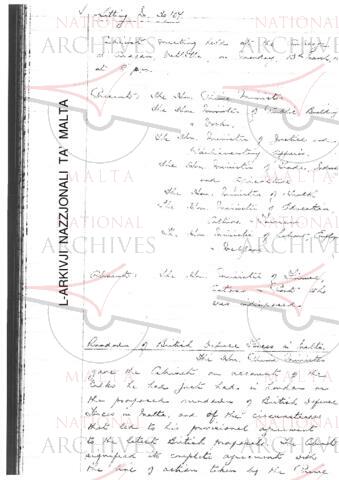 Sitting No.
Cabinet meeting held at the
at 5 p.m.
Present: The Hon. Prime Minister
The Hon. Minister of Public Building
& Works.
The Hon. Minister of Justice and
Parliamentary Affairs.
The Hon. Minister of Trade, Industry
and Agriculture
The Hon. Minister of Health
The Hon. Minister of Education,
Culture & Tourism
The Hon. Minister of Labour,
Welfare
Absent: The Hon. Minister of Finance,
Customs & Port who
was indisposed.
Rundown of British Defence Forces in Malta.
The Hon. Prime Minister
gave the Cabinet an account of the
talks he had just had in London on
the proposed rundown of British Defence
Forces in Malta, and of the circumstances
that led to his provisional agreement
to the latest British proposals. The Cabinet
signified its complete agreement with
the line of action taken by the Prime
L-ARKIVJI NAZZJONALI TA' MALTA
NATIONAL
ARCHIVES
MALTA